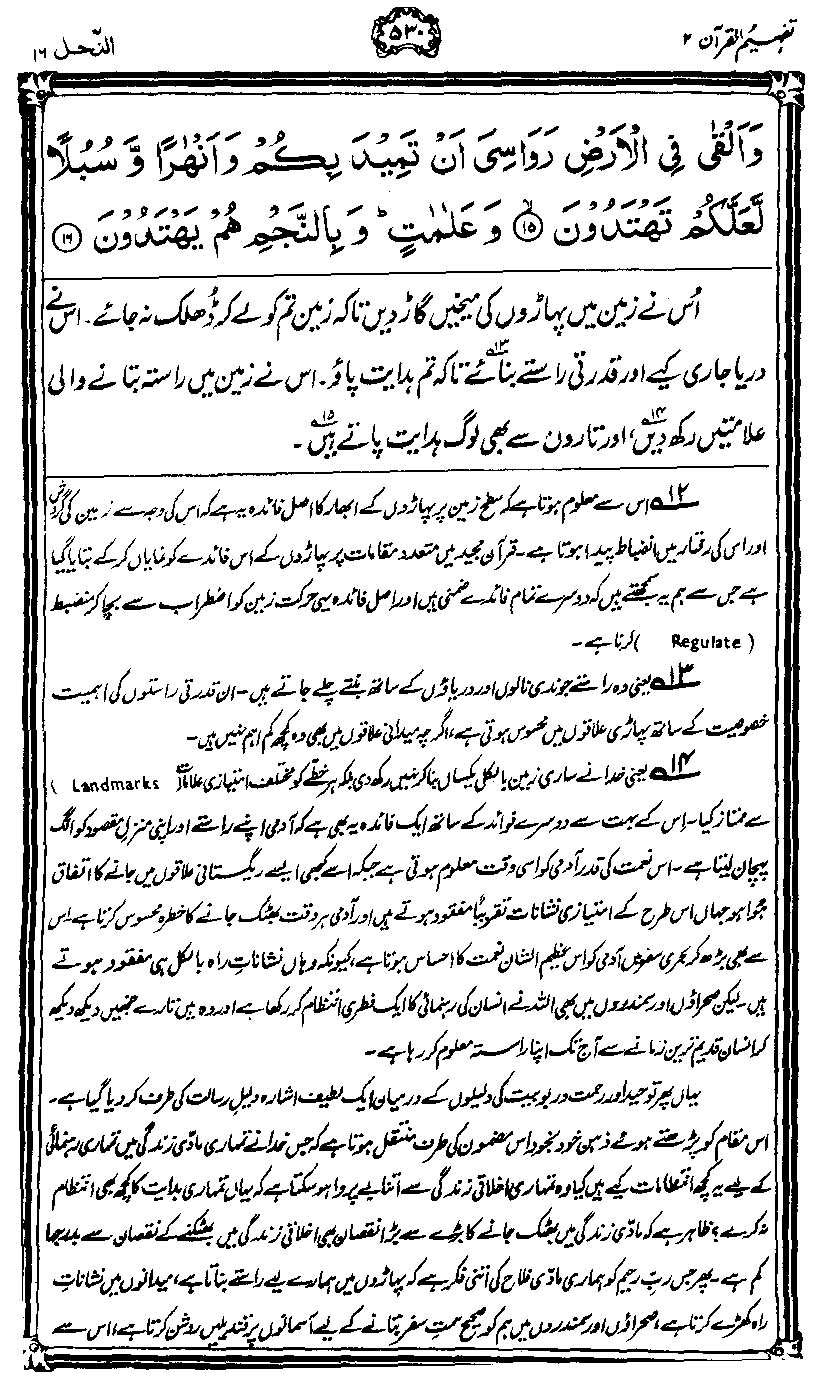 تفہیم القرآن ۲
۵۳۰
النحل ۱۶
وَاَلْقٰى فِى الْاَرْضِ رَوَاسِىَ اَنْ تَمِيْدَ بِكُمْ وَاَنْهٰرًا وَّ سُبُلًا
لَّعَلَّكُمْ تَهْتَدُوْنَ ۙ﴿۱۵﴾ وَ عَلٰمٰتٍ ؕ وَ بِالنَّجْمِ هُمْ يَهْتَدُوْنَ ﴿۱۶﴾
اُس نے زمین میں پہاڑوں کی میخیں گاڑ دیں تاکہ زمین تم کو لے کر ڈھلک نہ جائے۔ اس نے
دریا جاری کیے اور قدرتی راستے بنائے۱۳ تاکہ تم ہدایت پاؤ۔ اس نے زمین میں راستہ بتانے والی
علامتیں رکھ دیں۱۴، اور تاروں سے بھی لوگ ہدایت پاتے ہیں۱۵۔
۱۲ اس سے معلوم ہوتا ہے کہ سطح زمین پر پہاڑوں کے ابھار کا اصل فائدہ یہ ہے کہ اس کی وجہ سے زمین کی گردش
اور اس کی رفتار میں انضباط پیدا ہوتا ہے۔ قرآن مجید میں متعدد مقامات پر پہاڑوں کے اس فائدے کو نمایاں کر کے بتایا گیا
ہے جس سے ہم یہ سمجھتے ہیں کہ دوسرے تمام فائدے ضمنی ہیں اور اصل فائدہ یہی حرکت زمین کو اضطراب سے بچا کر منضبط
(Regulate) کرنا ہے۔
۱۳ یعنی وہ راستے جو ندی نالوں اور دریاؤں کے ساتھ بنتے چلے جاتے ہیں۔ ان قدرتی راستوں کی اہمیت
خصوصیت کے ساتھ پہاڑی علاقوں میں محسوس ہوتی ہے، اگرچہ میدانی علاقوں میں بھی وہ کچھ کم اہم نہیں ہیں۔
۱۴ یعنی خدا نے ساری زمین بالکل یکساں بنا کر نہیں رکھ دی بلکہ ہر خطے کو مختلف امتیازی علامات (Landmarks)
سے ممتاز کیا۔ اس کے بہت سے دوسرے فوائد کے ساتھ ایک فائدہ یہ بھی ہے کہ آدمی اپنے راستے اور اپنی منزل مقصود کو الگ
پہچان لیتا ہے۔ اس نعمت کی قدر آدمی کو اسی وقت معلوم ہوتی ہے جبکہ اسے کبھی ایسے ریگستانی علاقوں میں جانے کا اتفاق
ہوا ہو جہاں اس طرح کے امتیازی نشانات تقریباً مفقود ہوتے ہیں اور آدمی ہر وقت بھٹک جانے کا خطرہ محسوس کرتا ہے۔ اس
سے بھی بڑھ کر بحری سفر میں آدمی کو اس عظیم الشان نعمت کا احساس ہوتا ہے، کیونکہ وہاں نشاناتِ راہ بالکل ہی مفقود ہوتے
ہیں۔ لیکن صحراؤں اور سمندروں میں بھی اللہ نے انسان کی رہنمائی کا ایک فطری انتظام کر رکھا ہے اور وہ ہیں تارے جنہیں دیکھ دیکھ
کر انسان قدیم ترین زمانے سے آج تک اپنا راستہ معلوم کر رہا ہے۔
یہاں پھر توحید اور رحمت و ربوبیت کی دلیلوں کے درمیان ایک لطیف اشارہ دلیلِ رسالت کی طرف کر دیا گیا ہے۔
اس مقام کو پڑھتے ہوئے ذہن خود بخود اس مضمون کی طرف منتقل ہوتا ہے کہ جس خدا نے تمہاری مادّی زندگی میں تمہاری رہنمائی
کے لیے یہ کچھ انتظامات کیے ہیں کیا وہ تمہاری اخلاقی زندگی سے اتنا بے پروا ہو سکتا ہے کہ یہاں تمہاری ہدایت کا کچھ بھی انتظام
نہ کرے؟ ظاہر ہے کہ مادّی زندگی میں بھٹک جانے کا بڑے سے بڑا نقصان بھی اخلاقی زندگی میں بھٹکنے کے نقصان سے بدرجہا
کم ہے۔ پھر جس ربِّ رحیم کو ہماری مادّی فلاح کی اتنی فکر ہے کہ پہاڑوں میں ہمارے لیے راستے بناتا ہے، میدانوں میں نشاناتِ
راہ کھڑے کرتا ہے، صحراؤں اور سمندروں میں ہم کو صحیح سمتِ سفر بتانے کے لیے آسمانوں پر قندیلیں روشن کرتا ہے، اس سے